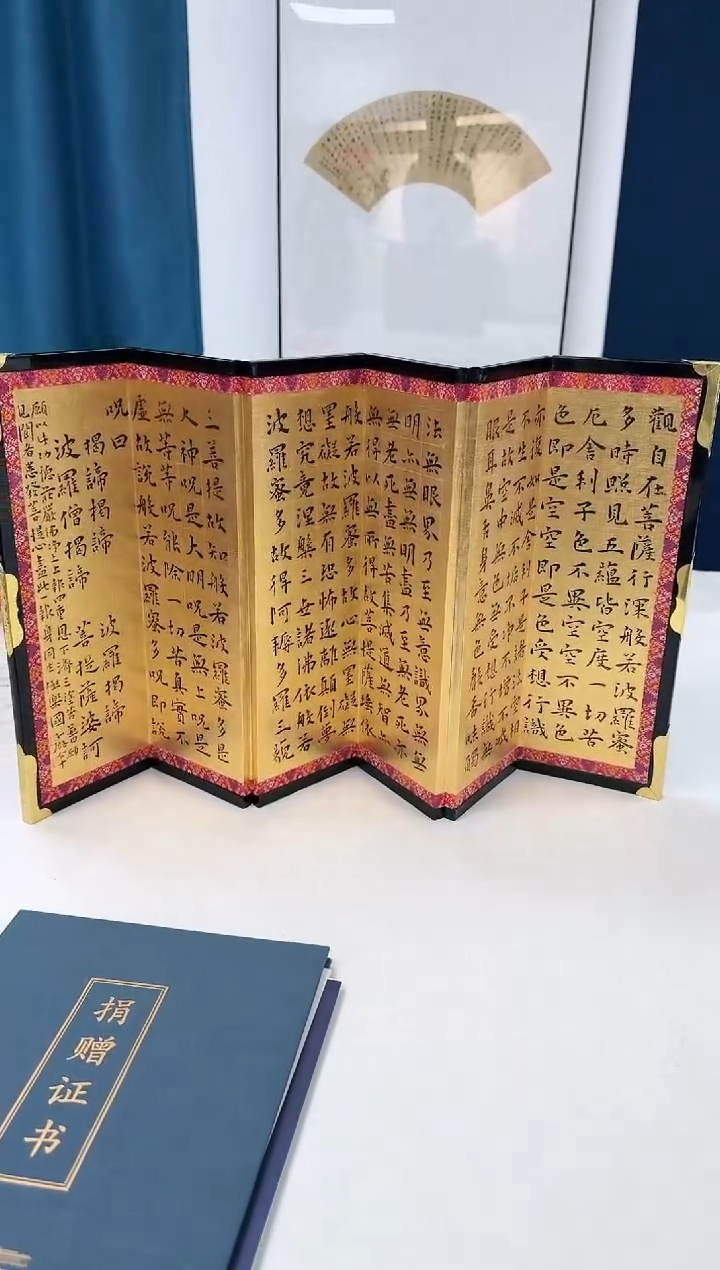 觀自在菩薩行深般若波羅蜜
多時照見五蘊皆空度一切苦
厄舍利子色不異空空不異色
色即是空空即是色受想行識
亦復如是舍利子是諸法空相
不生不滅不垢不淨不增不減
是故空中無色無受想行識無
眼耳鼻舌身意無色聲香味觸
法無眼界乃至無意識界無無
明亦無無明盡乃至無老死亦
無老死盡無苦集滅道無智亦
無得以無所得故菩提薩埵依
般若波羅蜜多故心無罣礙無
罣礙故無有恐怖遠離顛倒夢
想究竟涅槃三世諸佛依般若
波羅蜜多故得阿耨多羅三藐
三菩提故知般若波羅蜜多是
大神呪是大明呪是無上呪是
無等等呪能除一切苦真實不
虛故說般若波羅蜜多呪即說
呪曰
揭諦揭諦 波羅揭諦
波羅僧揭諦 菩提薩婆訶
願以此功德莊嚴佛淨土上報四重恩下濟三塗苦若有
見聞者悉發菩提心盡此一報身同生極樂國
捐赠证书